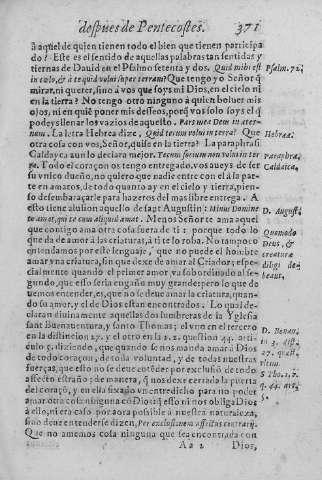 despues de Pentecostes. 371
à aquel de quien tienen todo el bien que tienen participa
do? Este es el sentido de aquellas palabras tan sentidas y
tiernas de Dauid en el Psalmo setenta y dos. Quid mihi est
in cœlo, & à te quid volui super terram? Que tengo yo Señor q̃
mirar, ni querer, sino à vos que soys mi Dios, en el cielo ni
en la tierra? No tengo otro ninguno à quien boluer mis
ojos, ni en quiẽ poner mis desseos, porq̃ vos solo soys el q̃
podeys llenar los vazios de aquesto. Pars mea Deus in æter-
num. La letra Hebrea dize, Quid tecum volui in terra? Que
otra cosa con vos, Señor, quise en la tierra? La paraphrasi
Caldayca aun lo declara mejor. Tecum socium non volui in ter
ra. Todo el coraçon os tengo entregado, vos aueys de ser
su vnico dueño, no quiero que nadie entre con el à la par-
te en amaros, de todo quanto ay en el cielo y tierra, pien-
so desembaraçarle para hazeros del mas libre entrega. A
esto tiene alusion aquello de sant Augustin: Minus Domine
te amat, qui te cum aliquid amat. Menos Señor te ama aquel
que contigo ama otra cosa fuera de ti: porque todo lo
que da de amor à las criaturas, à ti te lo roba. No tampoco
entendamos por este lenguaje, que no puede el hombre
amar vna criatura, sin que dexe de amar al Criador; espe-
cialmente quando el primer amor va subordinado al se-
gundo, que esso seria engaño muy grande: pero lo que de
uemos entender, es, que no se deue amar la criatura, quan-
do su amor, y el de Dios estan encontrados. Lo qual de-
claran diuinamente aquellas dos lumbreras de la Yglesia
sant Buenauentura, y santo Thomas; el vno en el tercero
en la distincion 27. y el otro en la 2. 2. question 44. arti-
culo 5. diziendo, que quando se nos manda amar à Dios
de todo coraçon, de toda voluntad, y de todas nuestras
fuerças, que esto no se deue entẽder por excluso de todo
affecto estraño; de manera, q̃ nos dexe cerrada la puerta
del coraçõ, y en ella fixada vn entredicho para no poder
amar otra cosa ninguna cõ Dios: q̃ esso ni nos obliga Dios
à ello, ni era caso por aora possible à nuestra naturaleza,
sino deue entenderse, Per exclusionem affectus contrarij.
Que no amemos cosa ninguna que sea encontrada con
Aa 2 Dios,
Psalm. 72.
Hebrea.
paraphra.
Caldaica.
D. August.
Quomodo
Deus, &
creatura
diligi de-
beant.
D. Bonau.
in 3. dist.
27. quæst.
S Tho. 2, 2.
q. 44. art.
5.